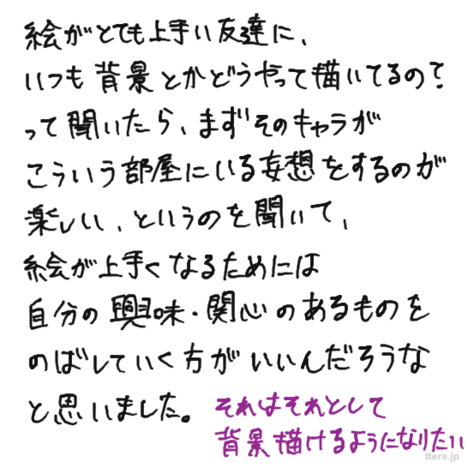 絵がとても上手い友達に、
いつも背景とかどうやって描いてるの？
って聞いたら、まずそのキャラが
こういう部屋にいる妄想をするのが
楽しい、というのを聞いて、
絵が上手くなるためには
自分の興味・関心のあるものを
のばしていく方がいいんだろうな
と思いました。それはそれとして
背景描けるようになりたい
tters.jp